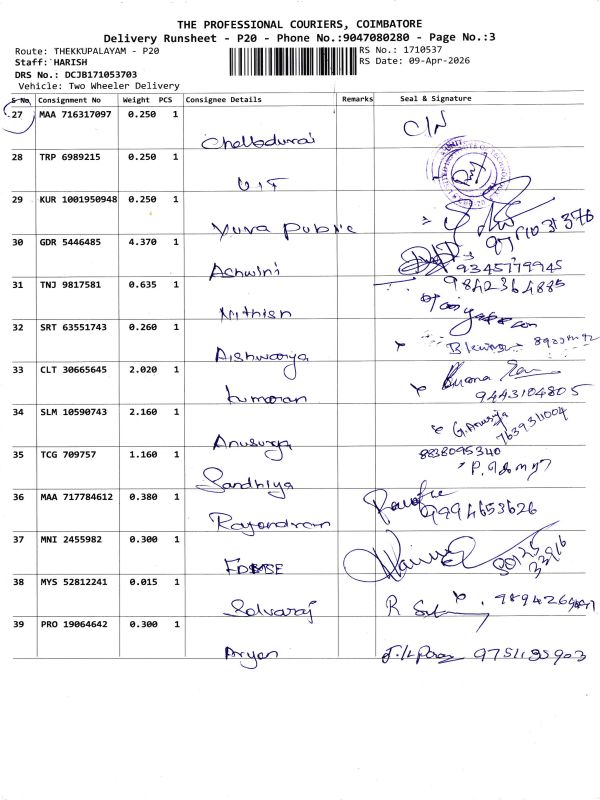 THE PROFESSIONAL COURIERS, COIMBATORE
Delivery Runsheet - P20 - Phone No.:9047080280 - Page No.:3
Route: THEKKUPALAYAM - P20
RS No.: 1710537
Staff: HARISH
RS Date: 09-Apr-2026
DRS No.: DCJB171053703
Vehicle: Two Wheeler Delivery
S No. Consignment No Weight PCS Consignee Details Remarks Seal & Signature
27 MAA 716317097 0.250 1
Chelladurai
28 TRP 6989215 0.250 1
29 KUR 1001950948 0.250 1
Yuva Public
30 GDR 5446485 4.370 1
Ashwini
9345179945
31 TNJ 9817581 0.635 1
9842364885
Nithish
32 SRT 63551743 0.260 1
Aishwarya
33 CLT 30665645 2.020 1
9443104805
34 SLM 10590743 2.160 1
7639311004
Anusurya
35 TCG 709757 1.160 1
8838095340
Sandhiya
36 MAA 717784612 0.380 1
9994653626
Rajendran
37 MNI 2455982 0.300 1
38 MYS 52812241 0.015 1
Selvaraj
39 PRO 19064642 0.300 1
Aryan